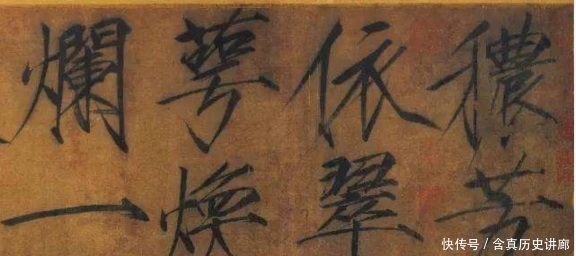 穠芳
依翠
萼煥
爛一
快传号 / 含真历史讲廊